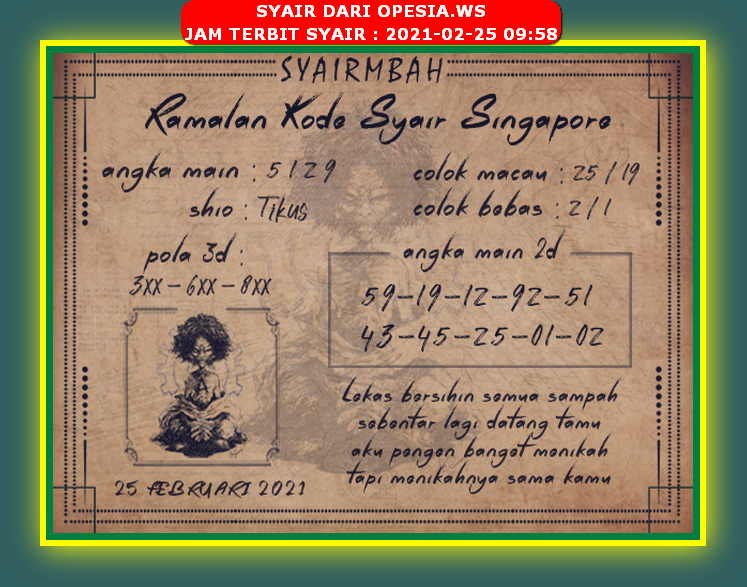 SYAIR DARI OPESIA.WS
JAM TERBIT SYAIR : 2021-02-25 09:58
SYAIRMBAH
Ramalan Kode Syair Singapore
angka main : 5 1 2 9
colok macau : 25 / 19
shio : Tikus
colok bebas : 2 / 1
pola 3d :
3XX - 6XX - 8XX
angka main 2d
59-19-12-92-51
43-45-25-01-02
Lekas bersihin semua sampah
sebentar lagi datang tamu
aku pengen banget menikah
tapi menikahnya sama kamu
25 FEBRUARI 2021